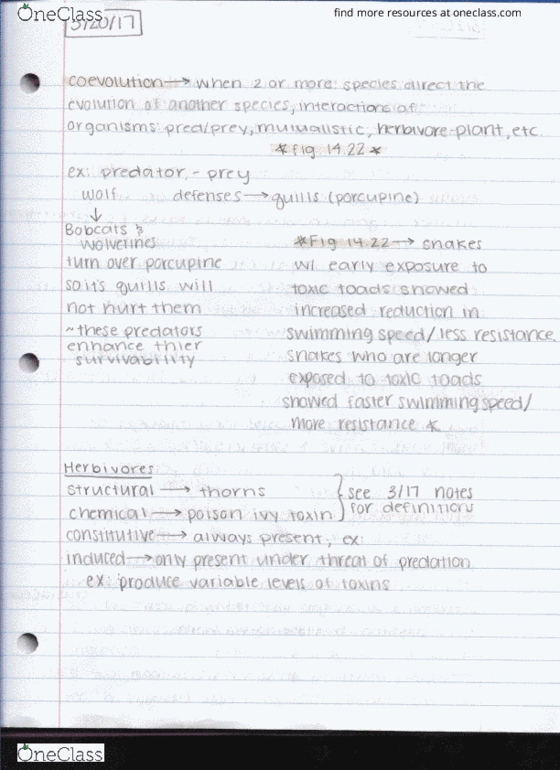 OneClass
find more resources at oneclass.com
3/20/17
coevolution → when 2 or more species direct the
evolution of another species, interactions of
organisms: pred/prey, mutualistic, herbivore-plant, etc.
*fig 14.22*
ex: predator - prey
wolf defenses → quills (porcupine)
↓
Bobcats &
wolverines
turn over porcupine
so it's quills will
not hurt them
~these predators
enhance thier
survivability
*Fig 14.22 → snakes
w/ early exposure to
toxic toads showed
increased reduction in
swimming speed/less resistance.
snakes who are longer
exposed to toxic toads
showed faster swimming speed/
more resistance *
Herbivores
structural → thorns
chemical → poison ivy toxin
see 3/17 notes
for definitions
constitutive → always present, ex:
induced → only present under threat of predation
ex: produce variable levels of toxins
OneClass